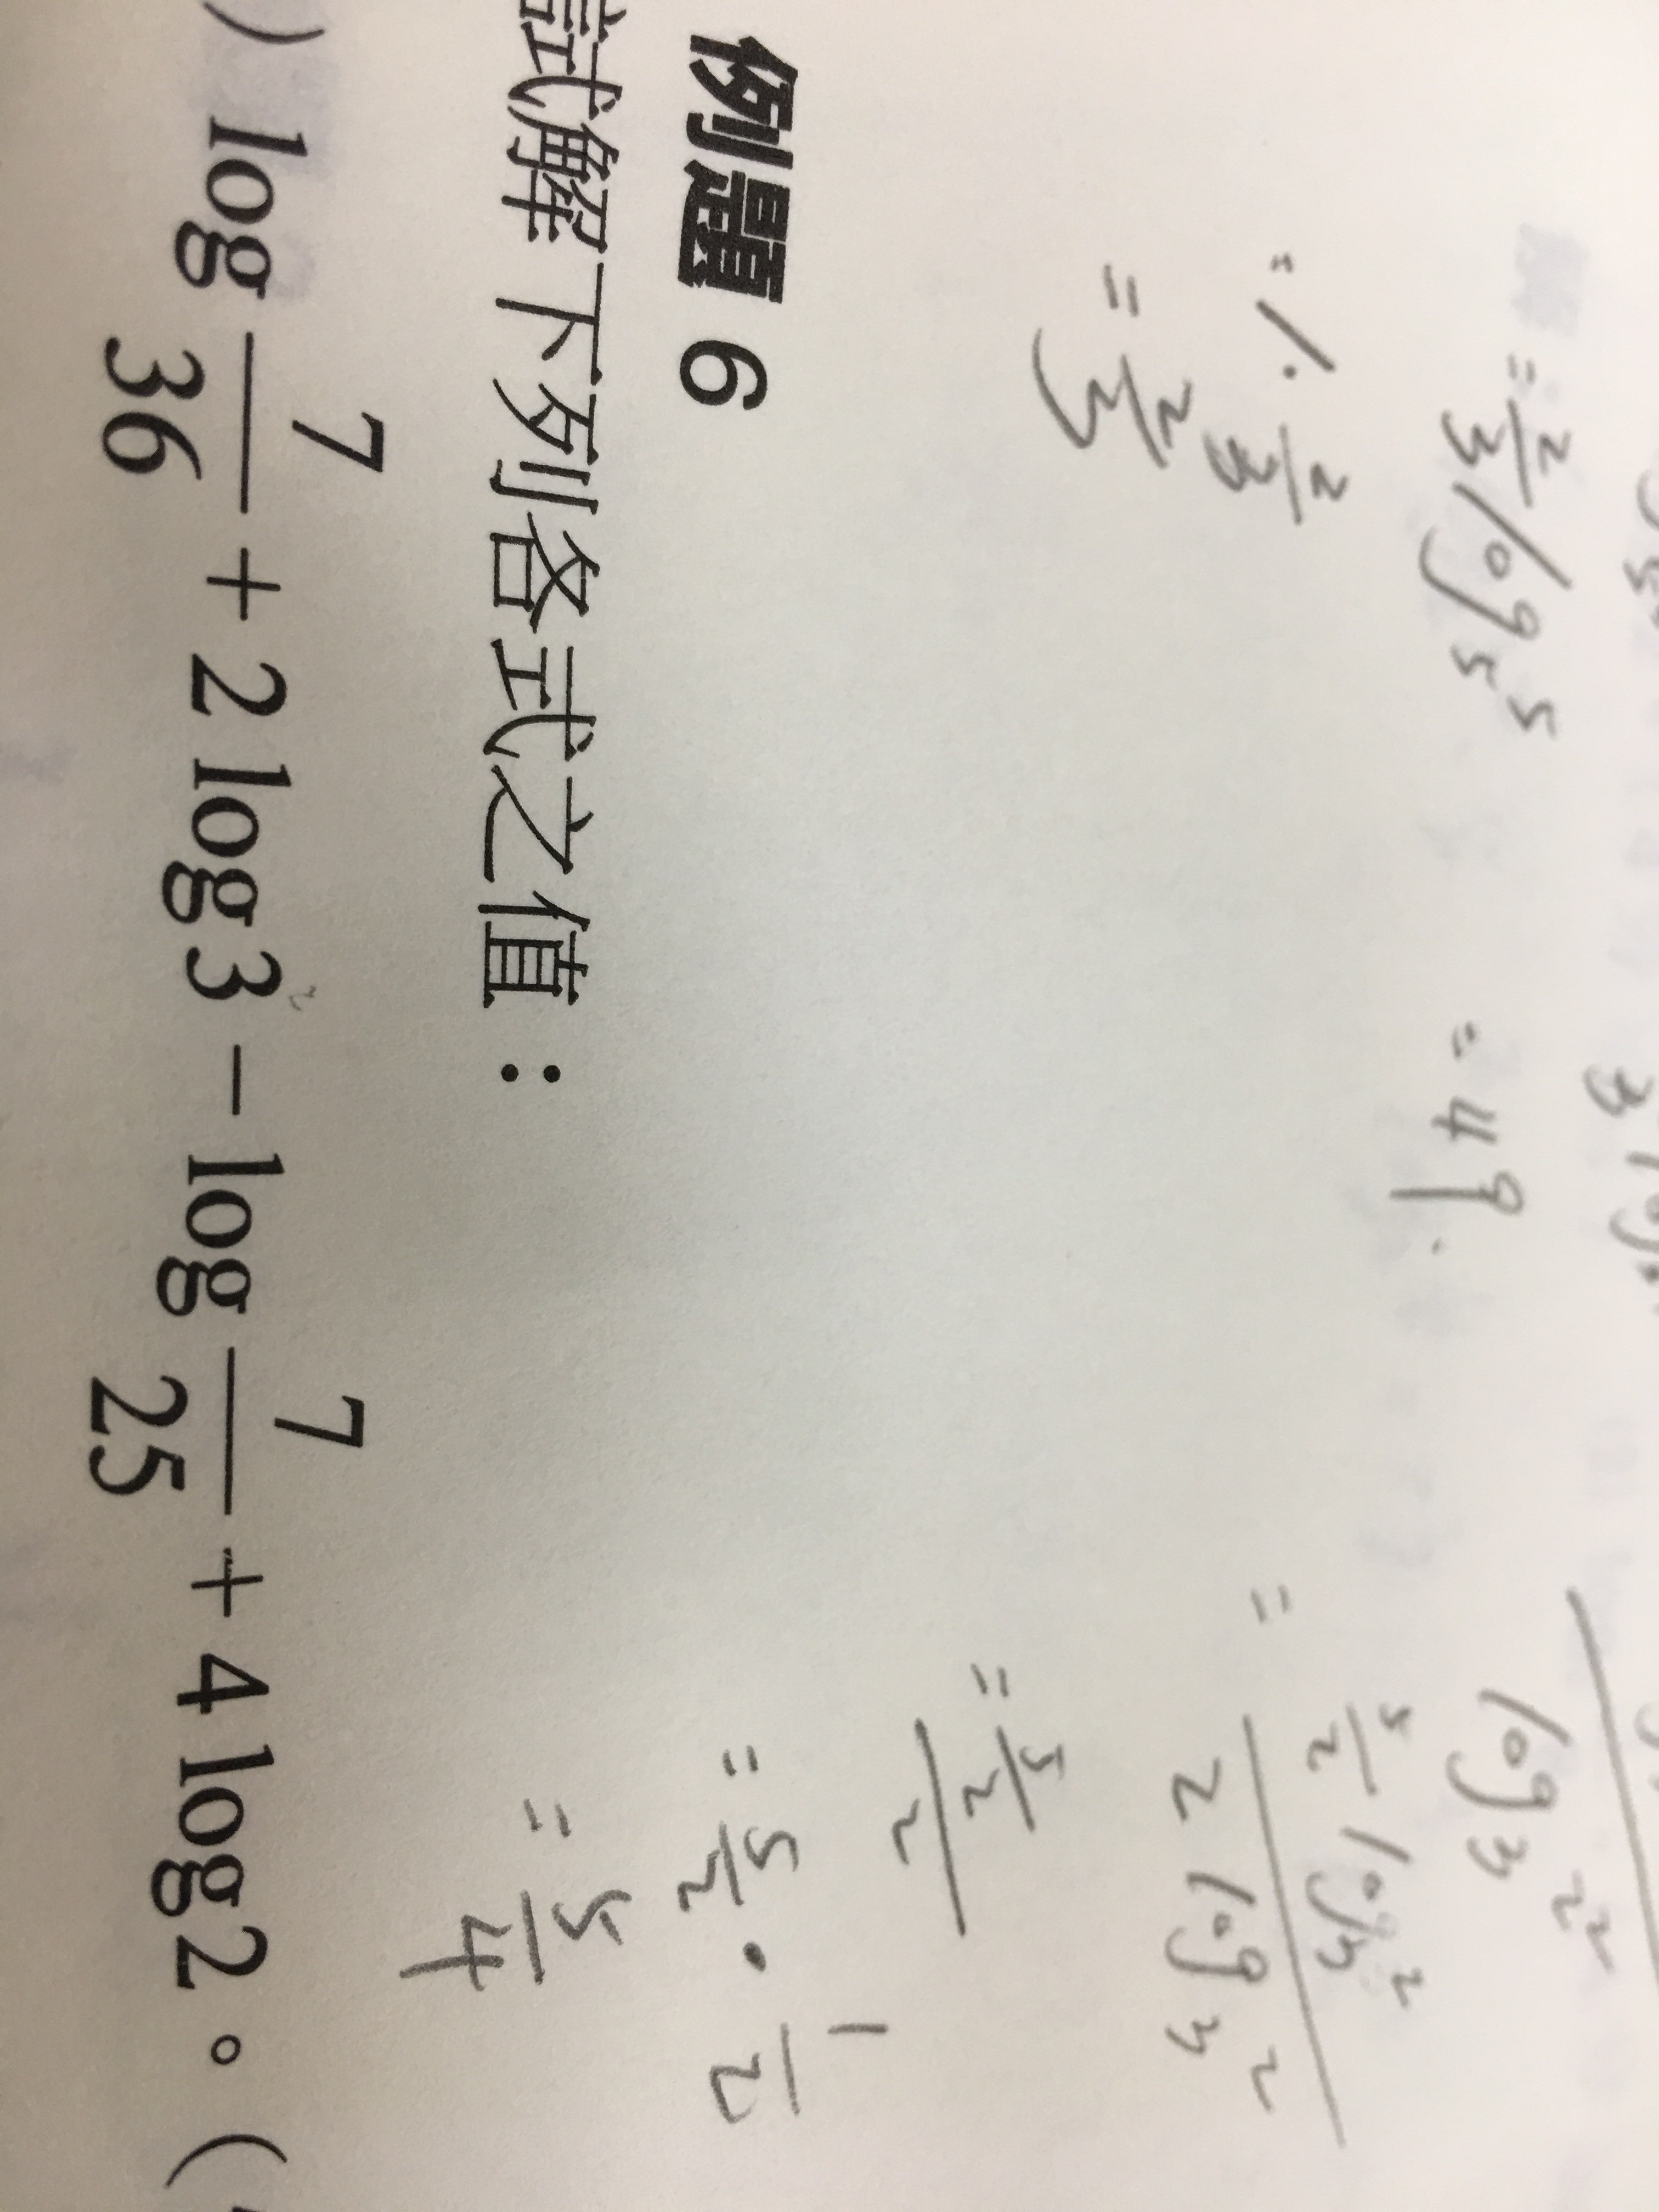 = 2/3 log₅ 5
= 1 · 2/3
= 2/3
= 49
log₃ 2²
= 5/2 log₃ 2 / 2 log₃ 2
= 5/2 / 2
= 5/2 · 1/2
= 5/4
例題 6
試解下列各式之值：
) log 7/36 + 2 log 3 − log 7/25 + 4 log 2 。 (